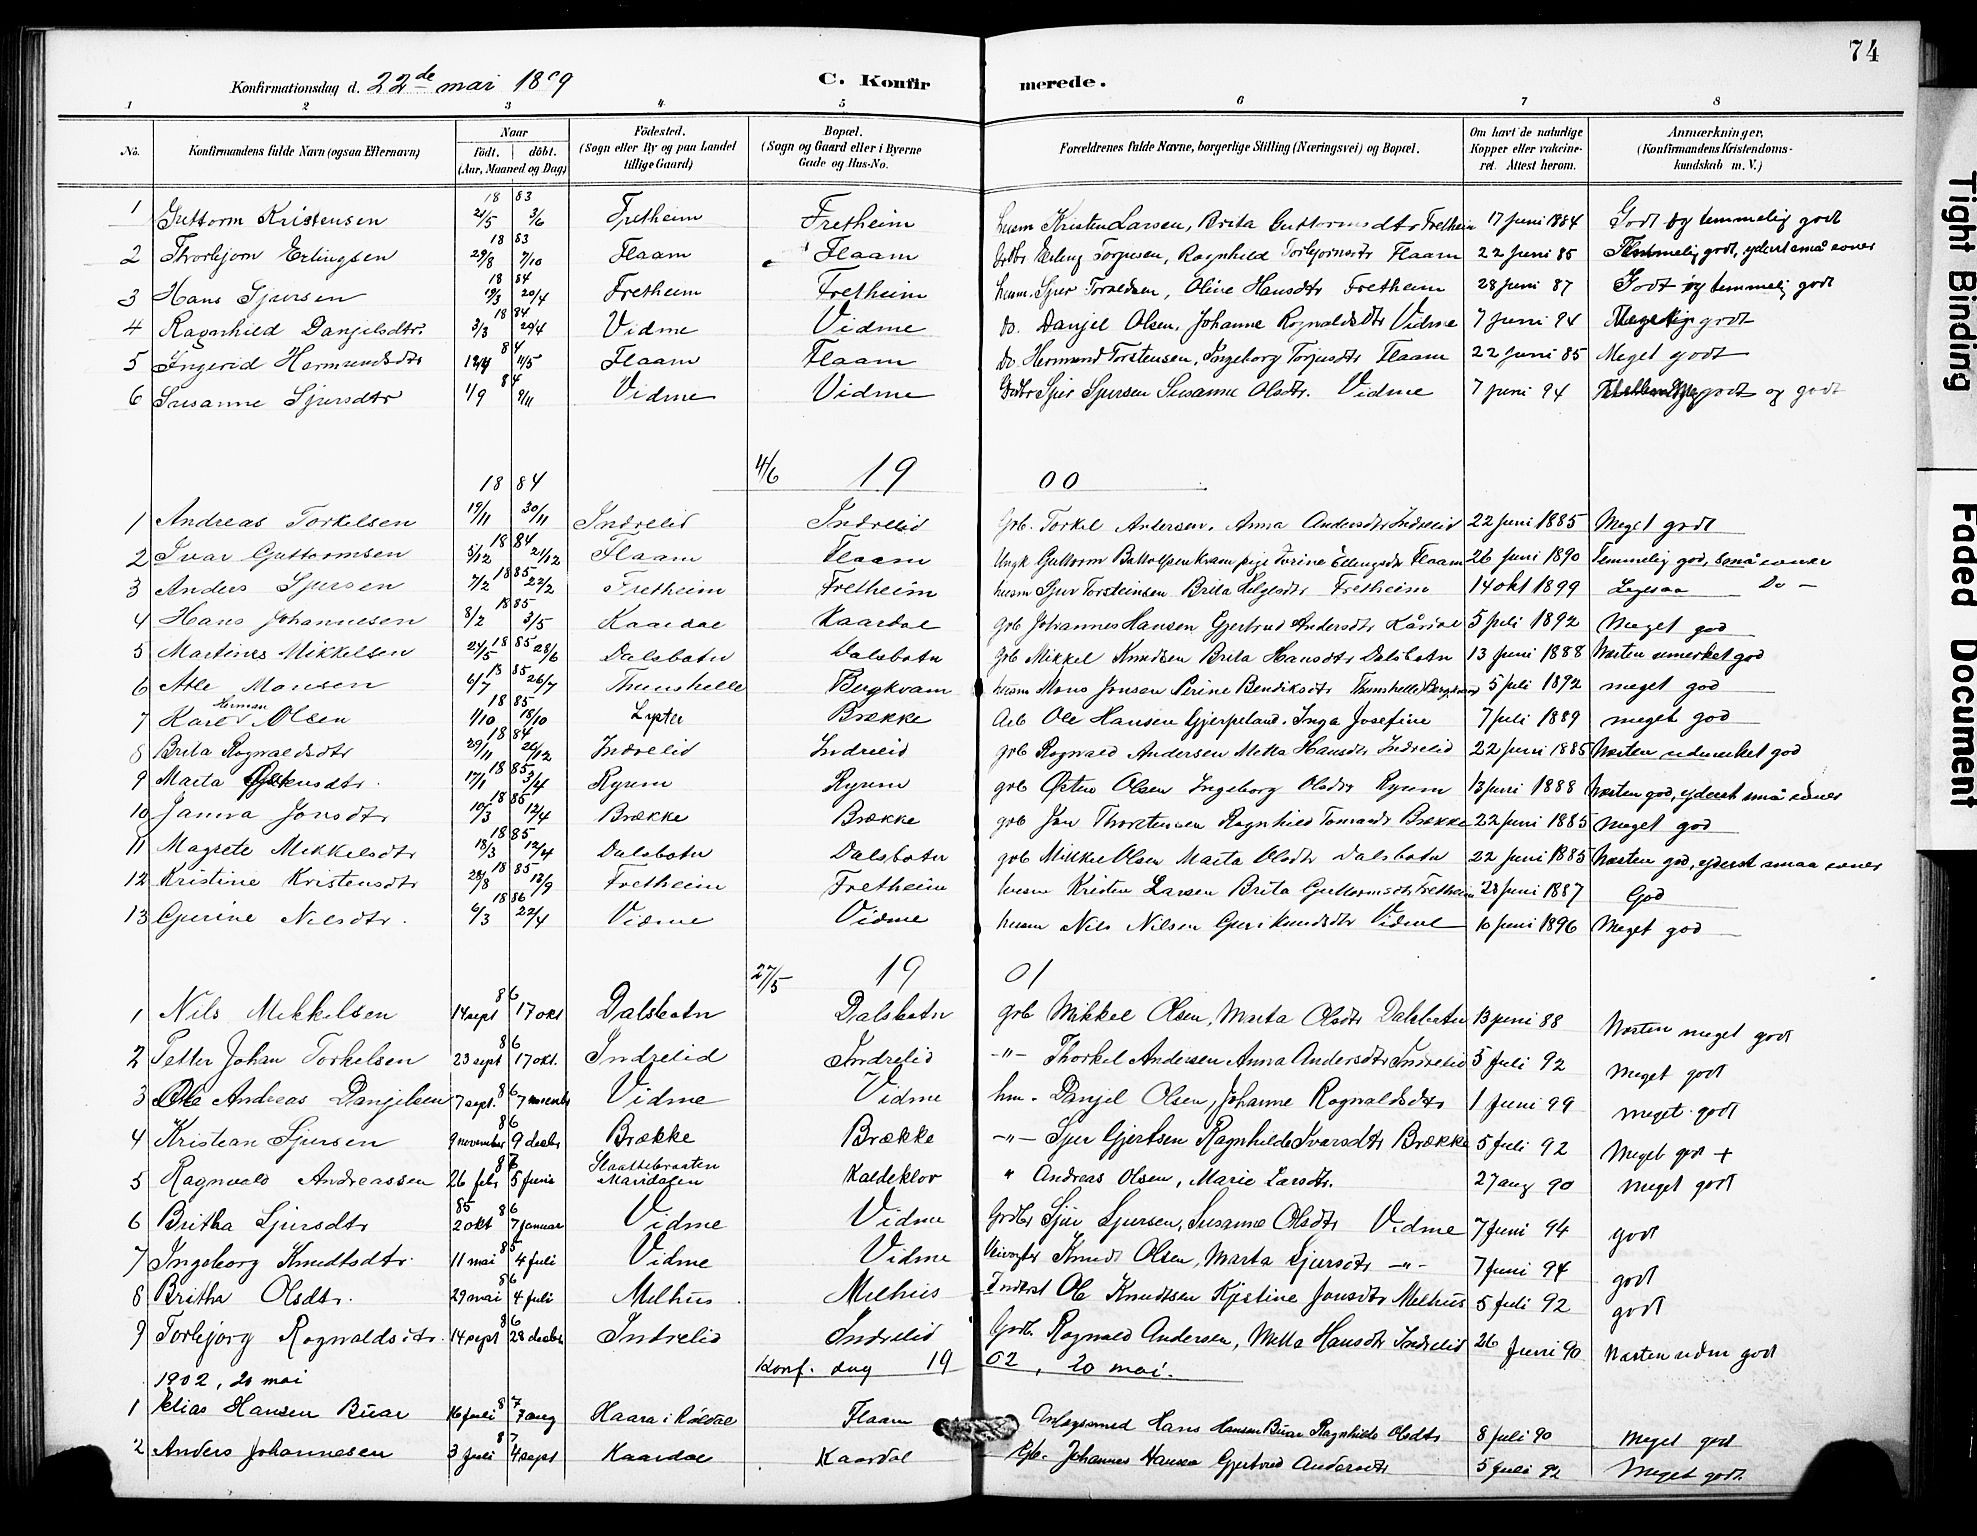 74
Konfirmationsdag d. 22de mai 1899 C. Konfirmerede.
1 2 3 4 5 6 7 8
No. Konfirmandens fulde Navn (ogsaa Efternavn) Naar födt. döbt. (Aar, Maaned og Dag) Födested. (Sogn eller By og paa Landet tillige Gaard) Bopæl. (Sogn og Gaard eller i Byerne Gade og Hus-No. Forældrenes fulde Navne, borgerlige Stilling (Næringsvei) og Bopæl. Om havt de naturlige Kopper eller vakcineret. Attest herom. Anmærkninger. (Konfirmandens Kristendomskundskab m. V.)
18 83
1 Guttorm Kristensen 21/5 3/6 Fretheim Fretheim husm Kristen Larsen, Brita Guttormsdtr Fretheim 17 juni 1884 Godt og temmelig godt
18 83
2 Thorbjørn Erlingsen 29/8 7/10 Flaam Flaam Grdbr Erling Torjusen, Ragnhild Torbjørnsdtr Flaam 22 juni 85 Temmelig godt, yderst små evner
18 84
3 Hans Sjursen 19/3 20/4 Fretheim Fretheim husm. Sjur Torvaldsen, Oline Hansdtr Fretheim 28 juni 87 Godt og temmelig godt
18 84
4 Ragnhild Danjelsdtr. 3/3 29/4 Vidme Vidme do. Danjel Olsen, Johanne Rognaldsdtr Vidme 7 juni 94 godt
84
5 Ingerid Hermundsdtr 13/4 11/5 Flaam Flaam do Hermund Torstensen, Ingeborg Torjusdtr Flaam 22 juni 85 Meget godt
84
6 Susanne Sjursdtr 1/9 9/11 Vidme Vidme Grdbr Sjur Sjursen Susanne Olsdtr. Vidme 7 juni 94 godt og godt
4/6 19 00
18 84
1 Andreas Torkelsen 19/11 30/11 Indrelid Indrelid Grb. Torkel Andersen, Anna Andersdtr Indrelid 22 juni 1885 Meget godt
18 84
2 Ivar Guttormsen 5/12 21/12 Flaam Flaam Ungk Guttorm Bottolfsen Kvam pige Turine Ellingsdtr Flaam 26 juni 1890 Temmelig god, små evner
18 85
3 Anders Sjursen 7/2 22/2 Fretheim Fretheim husm Sjur Torsteinsen Brita Helgesdtr Fretheim 14 okt 1899 Ligesaa Do -
18 85
4 Hans Johannesen 8/2 3/5 Kaardal Kaardal grb Johannes Hansen Gjertrud Andersdtr Kårdal 5 juli 1892 Meget god
18 85
5 Martines Mikkelsen 24/5 28/6 Dalsbotn Dalsbotn grb Mikkel Knudsen Brita Hansdtr Dalsbotn 13 juni 1888 Næsten umerket god
18 85
6 Atle Monsen 6/7 26/7 Thunshelle Bergkvam husm Mons Jonsen Perine Bendiksdtr Thunshelle Bergkvam 5 juli 1892 meget god
18 85
7 Karl Herman Olsen 1/10 18/10 Lyster Brække Arb Ole Hansen Gjerpeland, Inga Josefine 7 juli 1889 meget god
18 84
8 Brita Rognaldsdtr 29/11 26/12 Indrelid Indrelid grb Rognald Andersen Metta Hansdtr Indrelid 22 juni 1885 Næsten udmerket god
18 85
9 Marta dtr. 17/1 3/4 Ryum Ryum grb Østen Olsen Ingeborg Olsdtr Ryum 13 juni 1888 Næsten god, yderst små evner
18 85
10 Janna Jonsdtr 10/3 12/4 Brække Brække grb Jon Thorstensen Ragnhild Tomasdr Brække 22 juni 1885 Meget god
18 85
11 Magrete Mikkelsdtr 18/3 12/4 Dalsbotn Dalsbotn grb Mikkel Olsen Marta Olsdtr Dalsbotn 22 juni 1885 Næsten god, yderst smaa evner
18 85
12 Kristine Kristensdtr 28/8 13/9 Fretheim Fretheim husm Kristen Larsen Brita Guttormsdtr Fretheim 28 juni 1887 God
18 86
13 Gurine Nilsdtr. 6/3 22/4 Vidme Vidme husm Nils Nilsen Guri Knudsdtr Vidme 16 juni 1896 Meget god
27/5 19 01
86
1 Nils Mikkelsen 14 sept 17 okt Dalsbotn Dalsbotn grb Mikkel Olsen, Marta Olsdtr Dalsbotn 13 juni 88 Næsten meget godt
86
2 Petter Johan Torkelsen 23 sept 17 okt. Indrelid Indrelid -"- Thorkel Andersen Anna Andersdtr Indrelid 5 juli 92 Meget godt
86
3 Ole Andreas Danjelsen 7 sept. 7 novembr Vidme Vidme hm. Danjel Olsen, Johanne Rognaldsdtr 1 juni 99 meget godt
86
4 Kristian Sjursen 9 november 9 decbr Brække Brække -"- Sjur Gjertsen Ragnhilde Ivarsdtr Brække 5 juli 92 Meget godt +
5 Ragnvald Andreassen 26 febr 5 juni Slaattebraaten Maridalen Kaldeklov " Andreas Olsen, Marie Larsdtr. 27 aug 90 Meget godt
85 86
6 Britha Sjursdtr 2 okt 7 januar Vidme Vidme Grdbr Sjur Sjursen, Susanne Olsdtr Vidme 7 juni 94 godt
85
7 Ingeborg Knudtsdtr. 11 mai 4 juli Vidme Vidme Knudt Olsen, Marta Sjursdtr -"- 7 juni 94 godt
86
8 Britha Olsdtr. 29 mai 4 juli Melhus Melhus Inderst Ole Knudtsen Kjistine Jonsdtr Melhus 5 juli 92 godt
86
9 Torbjørg Rognaldsdtr. 14 sept 28 decbr Indrelid Indrelid Grdb. Rognald Andersen, Metta Hansdtr Indrelid 26 juni 90 Næsten udm godt
1902, 20 mai Konf. dag 1902, 20 mai.
87
1 Elias Hansen Buar 16 juli 7 aug Haara i Røldal Flaam Anlægssmed Hans Hansen Buar Ragnhilde Olsdtr 8 juli 90 Meget godt
87
2 Anders Johannesen 3 juli 4 sept Kaardal Kaardal Gb. Johannes Hansen Gjertrud Andersdtr 5 juli 92 Meget godt.
Tight Binding
Faded Document